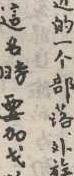 近的一个部落外族
這名時要加戈